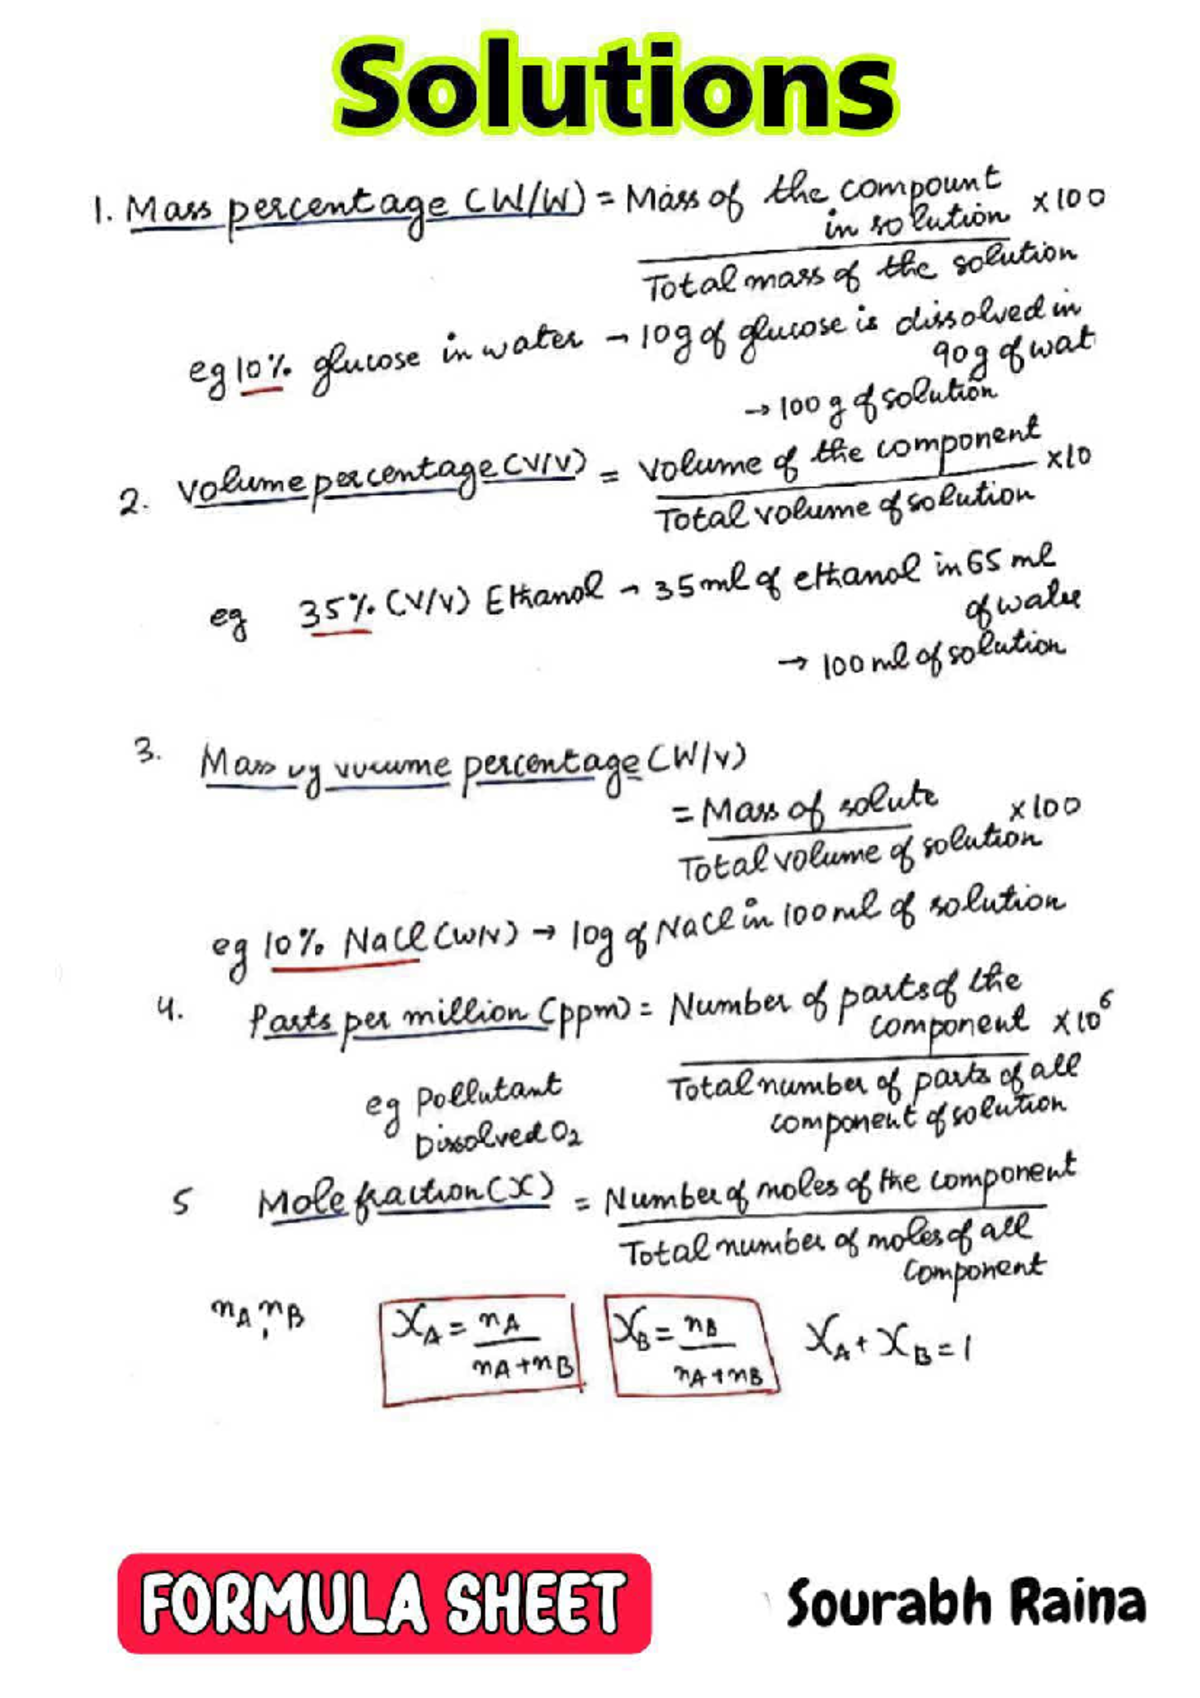 Solutions
1. Mass percentage (W/W) = Mass of the compount
in solution ×100
Total mass of the solution
eg 10% glucose in water → 10g of glucose is dissolved in
90g of wat
→ 100 g of solution
2. Volume percentage (V/V) = Volume of the component ×10
Total volume of solution
eg 35% (V/V) Ethanol → 35ml of ethanol in 65 ml
of water
→ 100 ml of solution
3. Mass by volume percentage (W/V)
= Mass of solute ×100
Total volume of solution
eg 10% NaCl (W/V) → 10g of NaCl in 100 ml of solution
4. Parts per million (ppm) = Number of parts of the
component ×10⁶
Total number of parts of all
component of solution
eg Pollutant
Dissolved O₂
5 Mole fraction (X) = Number of moles of the component
Total number of moles of all
component
nA, nB
XA = nA / nA+nB
XB = nB / nA+nB
XA + XB = 1
FORMULA SHEET
Sourabh Raina